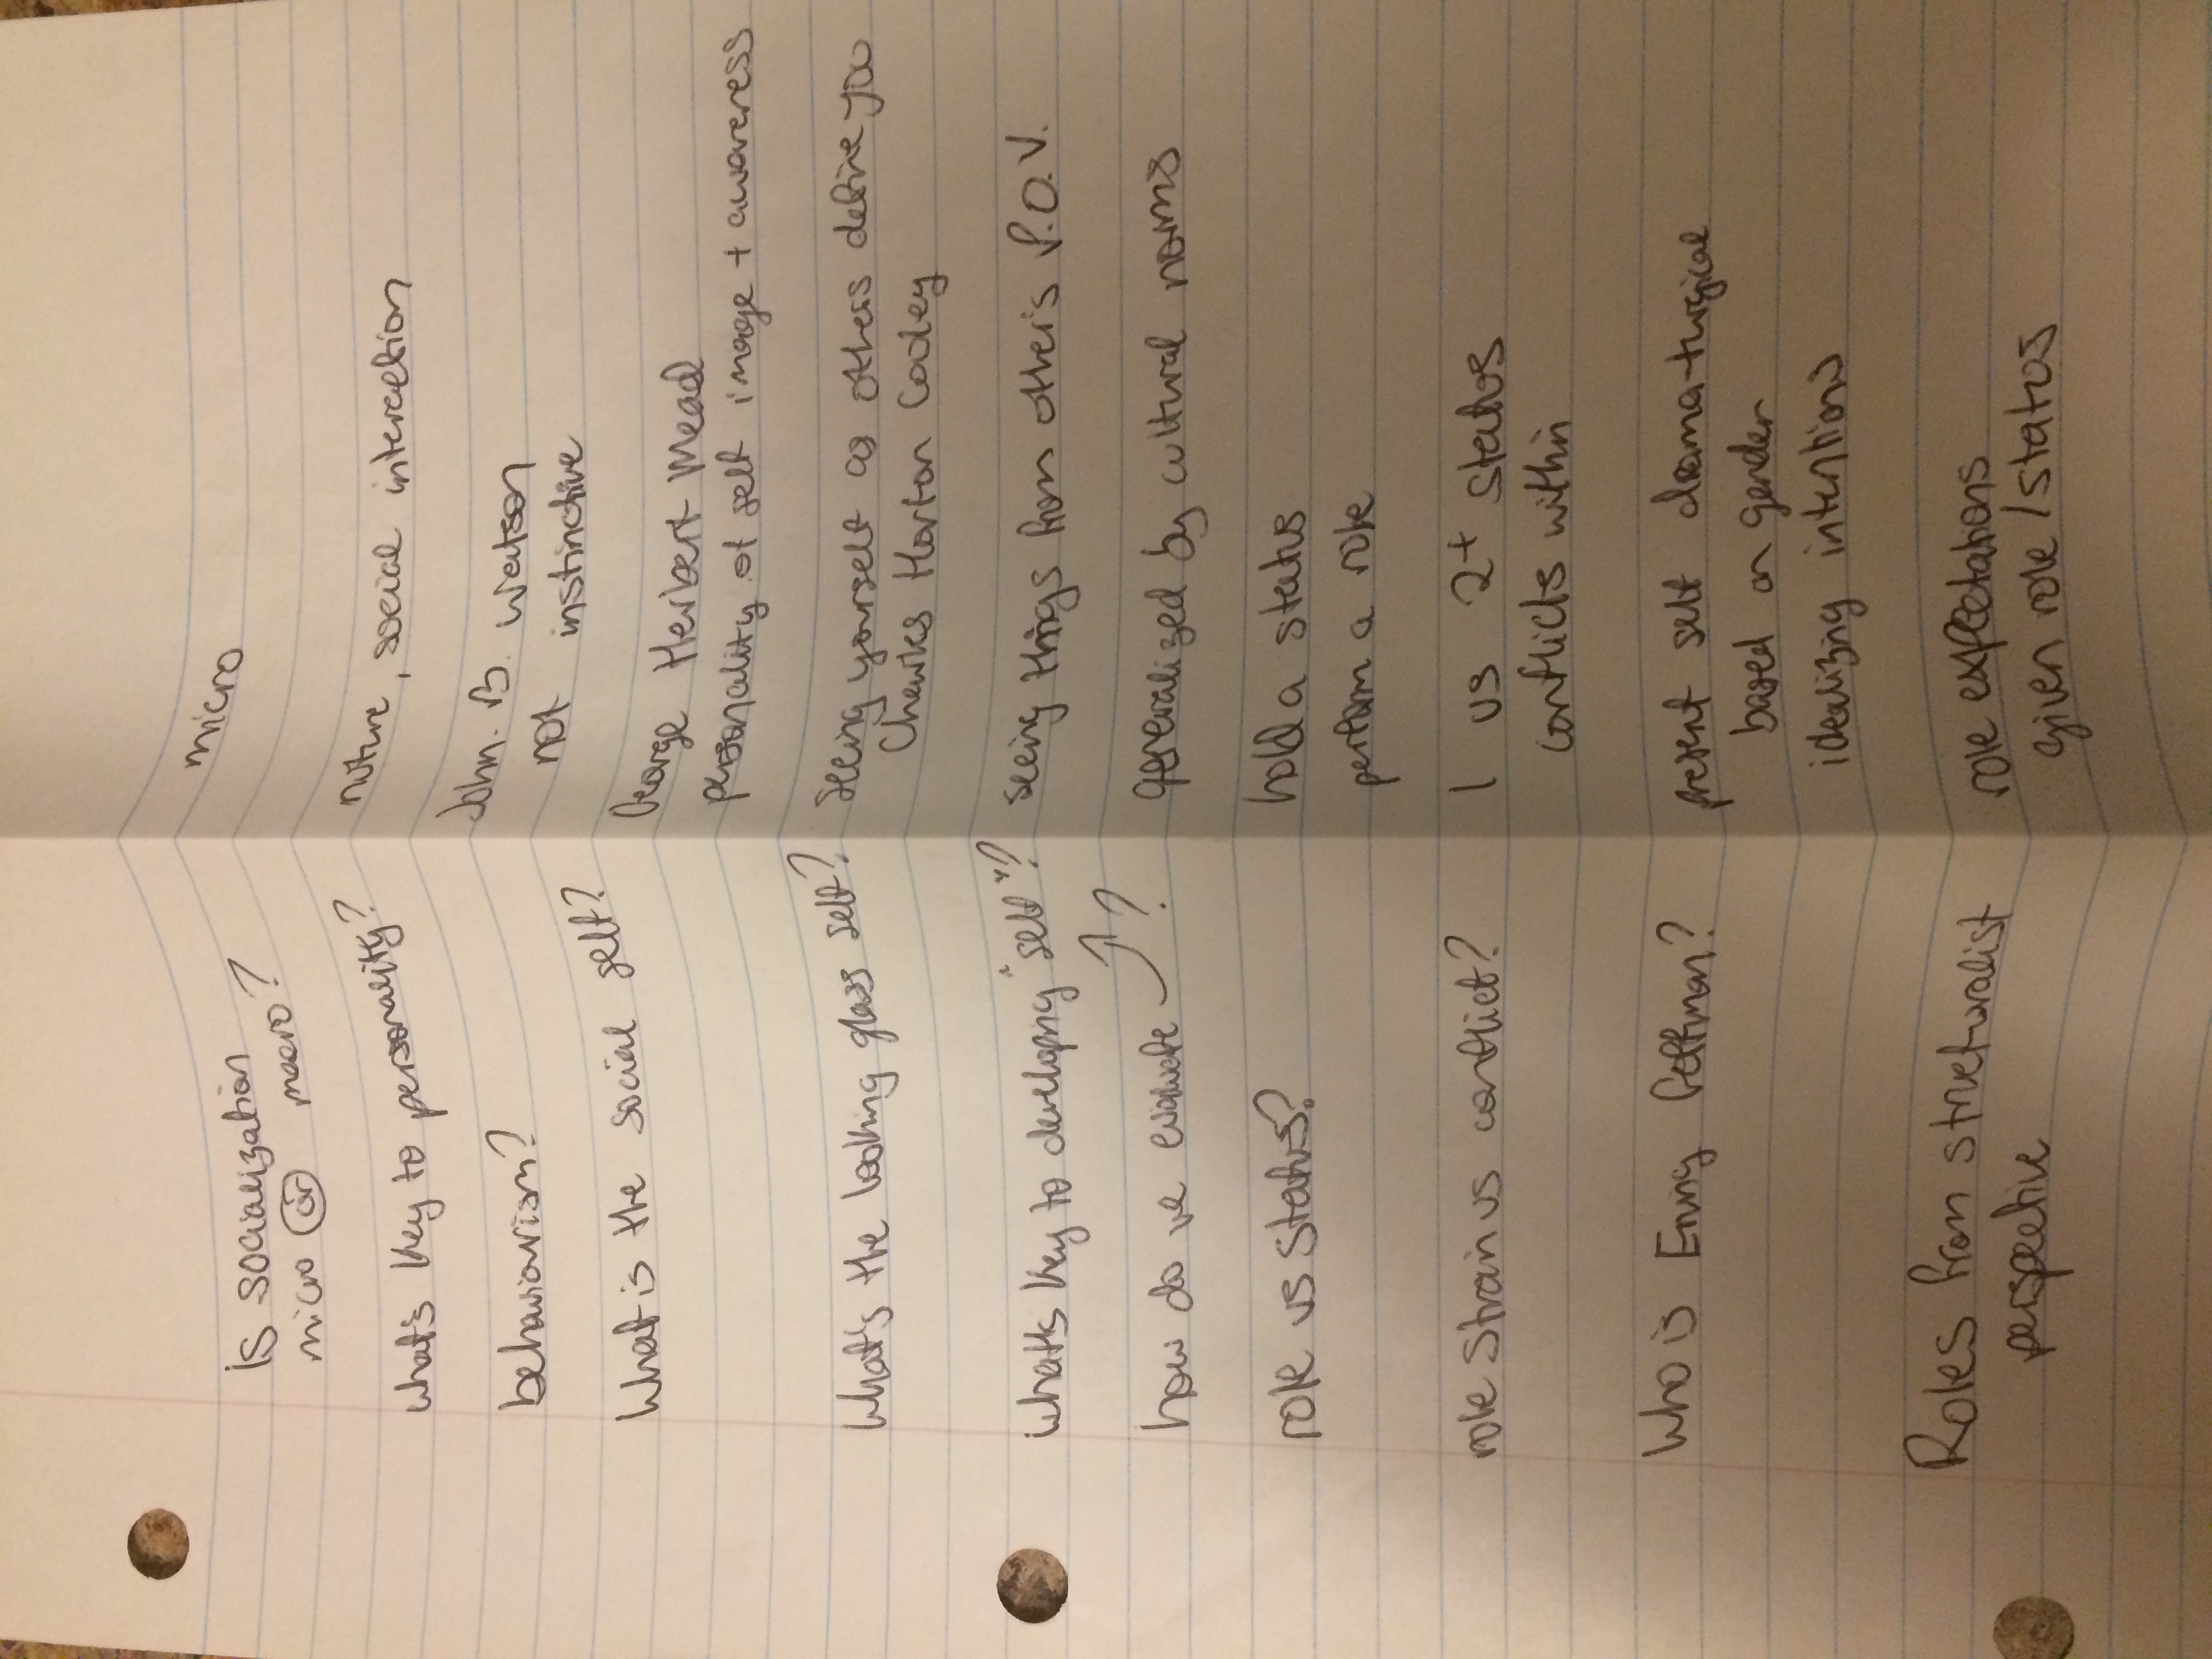 Is socialization
micro or macro?
micro
what's key to personality?
nuture, social interaction
behaviorism?
John. B. Watson
not instinctive
What is the social self?
George Herbert Mead
personality of self image + awareness
What's the looking glass self?
seeing yourself as others define you
Charles Horton Cooley
what's key to developing "self"?
seeing things from other's P.O.V.
how do we evaluate ?
generalized by cultural norms
role vs status?
hold a status
perform a role
role strain vs conflict?
1 vs 2+ status
conflicts within
Who is Erving Goffman?
present self dramaturgical
based on gender
idealizing intentions
Roles from structuralist
perspective
role expectations
given role / status